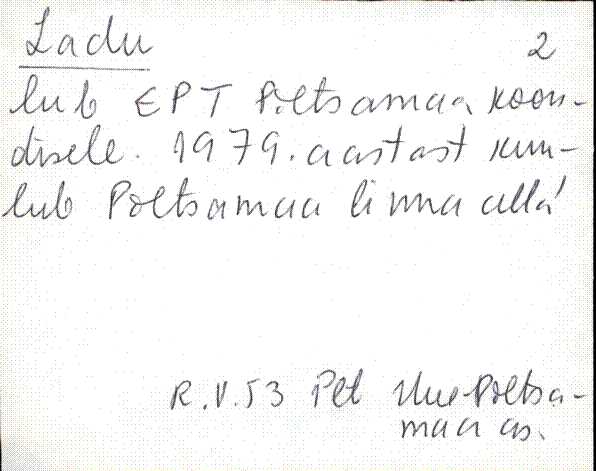 Ladu 2
lub EPT Põltsamaa koon-
disele. 1979. aastast kuu-
lub Põltsamaa linna alla
R.V. 53 Plt Uue-Põltsa-
maa as.